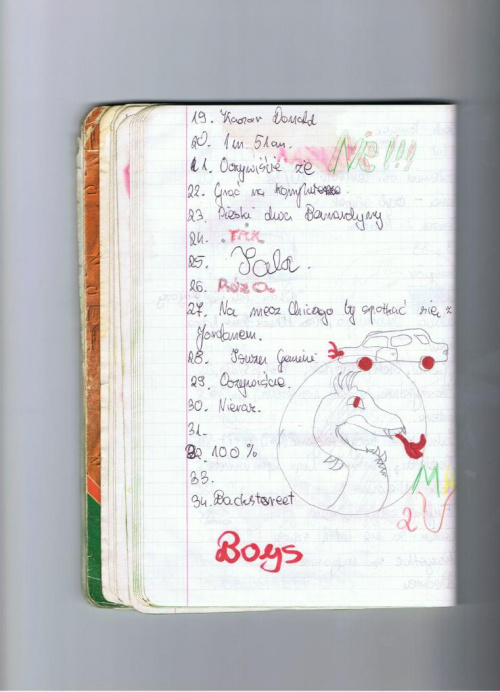 19. Kaczor Donald
20. 1m 51cm.
21. Oczywiście że NIE!!!
22. Grać na komputerze
23. Pieski dwa Bernardyny
24. TAK
25.
26. RÓŻA
27. Na mecz Chicago by spotkać się z
Jordanem.
28.
29. Oczywiście.
30. Nieraz.
31.
32. 100%
33.
34. Backstreet
Boys